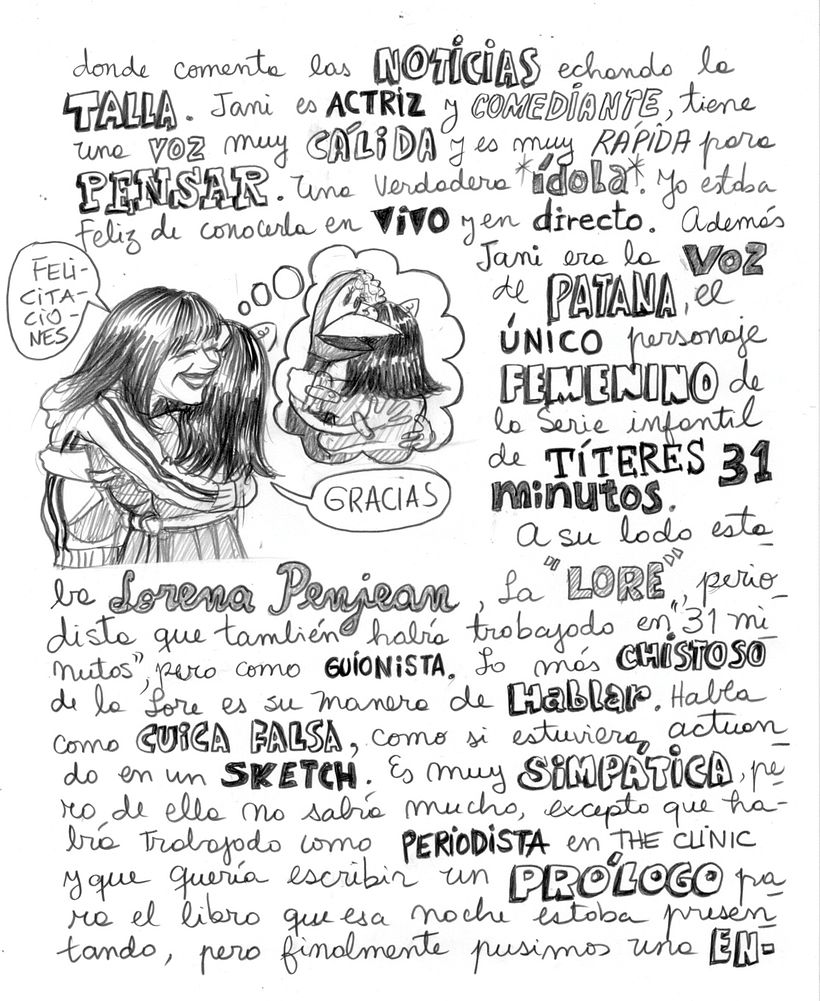 donde comenta las NOTICIAS echando la
TALLA. Jani es ACTRIZ y COMEDIANTE, tiene
una VOZ muy CÁLIDA y es muy RÁPIDA para
PENSAR. Una verdadera *ídola*. Yo estaba
feliz de conocerla en VIVO y en directo. Además
FELI-
CITA-
CIO-
NES
Jani era la VOZ
de PATANA, el
ÚNICO personaje
FEMENINO de
la serie infantil
de TÍTERES 31
minutos.
GRACIAS
A su lado esta-
ba Lorena Penjean, La "LORE", perio-
dista que también había trabajado en "31 mi-
nutos", pero como GUIONISTA. Lo más CHISTOSO
de la Lore es su manera de Hablar. Habla
como CUICA FALSA, como si estuviera actuan-
do en un SKETCH. Es muy SIMPÁTICA, pe-
ro de ella no sabía mucho, excepto que ha-
bía trabajado como PERIODISTA en THE CLINIC
y que quería escribir un PRÓLOGO pa-
ra el libro que esa noche estaba presen-
tando, pero finalmente pusimos una EN-